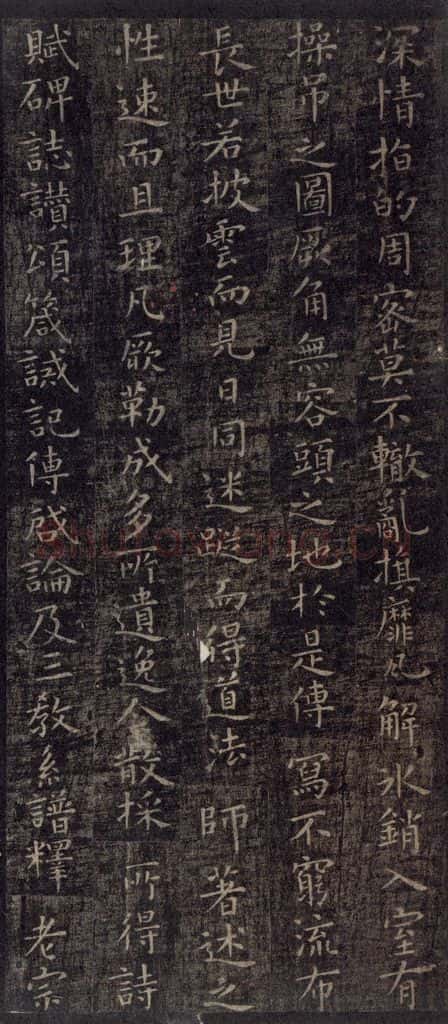 深情指的周密莫不轍亂旗靡瓦解冰銷入室有
操吊之圖厥角無容頭之地於是傳寫不窮流布
長世若披雲而見日同迷蹤而得道法師著述之
性速而且理凡厥勒成多所遺逸今散採所得詩
賦碑誌讚頌箴誡記傳啟論及三教系譜釋老宗